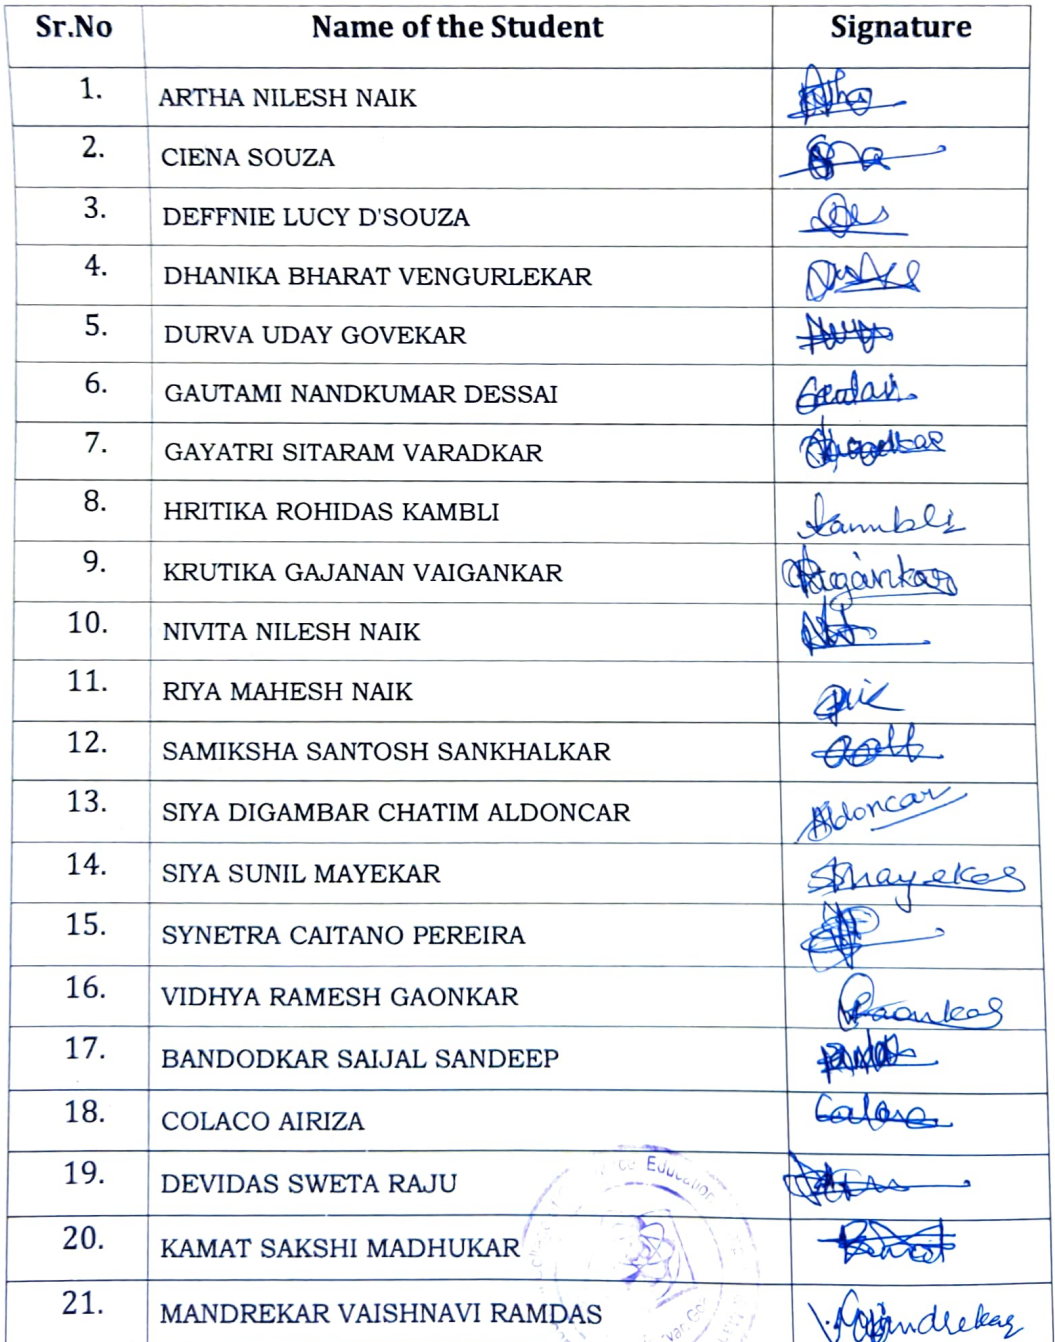 Sr.No Name of the Student Signature
1. ARTHA NILESH NAIK
2. CIENA SOUZA
3. DEFFNIE LUCY D'SOUZA
4. DHANIKA BHARAT VENGURLEKAR
5. DURVA UDAY GOVEKAR
6. GAUTAMI NANDKUMAR DESSAI
7. GAYATRI SITARAM VARADKAR
8. HRITIKA ROHIDAS KAMBLI Kambli
9. KRUTIKA GAJANAN VAIGANKAR Vaigankar
10. NIVITA NILESH NAIK
11. RIYA MAHESH NAIK
12. SAMIKSHA SANTOSH SANKHALKAR
13. SIYA DIGAMBAR CHATIM ALDONCAR Aldoncar
14. SIYA SUNIL MAYEKAR SMayekar
15. SYNETRA CAITANO PEREIRA
16. VIDHYA RAMESH GAONKAR Gaonkar
17. BANDODKAR SAIJAL SANDEEP
18. COLACO AIRIZA
19. DEVIDAS SWETA RAJU
20. KAMAT SAKSHI MADHUKAR
21. MANDREKAR VAISHNAVI RAMDAS
Education